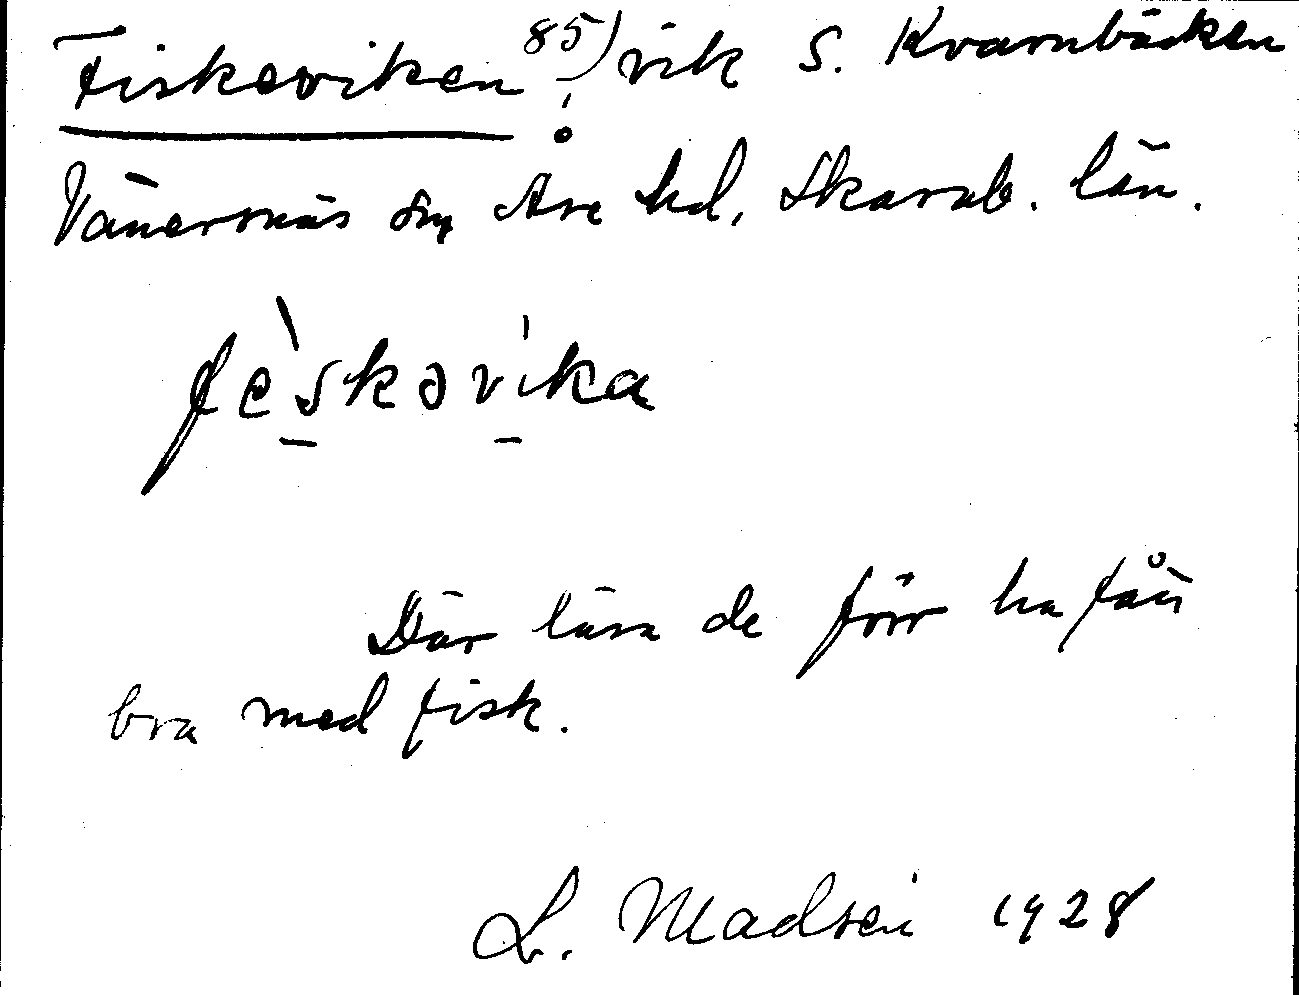 Fiskeviken 85) ; vik S. Kvarnbäcken
Vänersnäs sn, Åse hd, Skarab. län.
fèskəvi̍ka
Där lära de förr ha fått
bra med fisk.
L. Madsen 1928